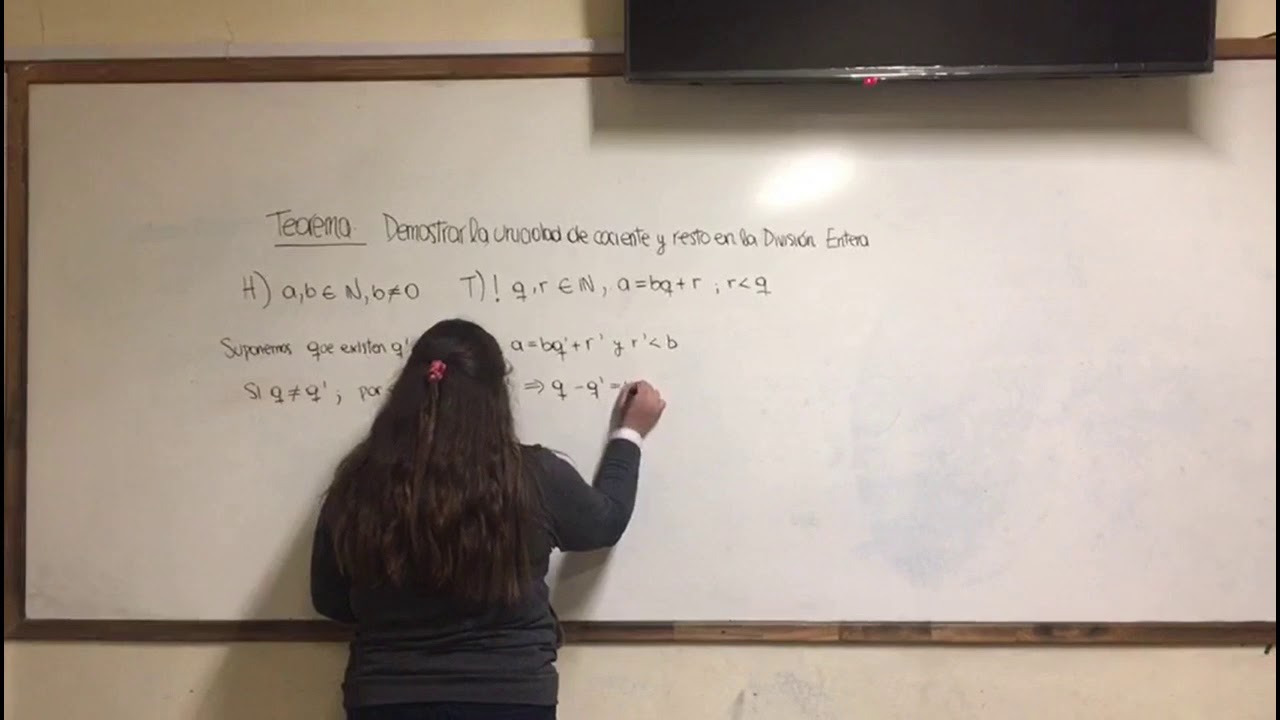 Teorema. Demostrar la unicidad de cociente y resto en la División Entera
H) a,b ∈ N, b≠0 T) ! q,r ∈ N, a=bq+r ; r<q
Suponemos que existen q' a=bq'+r' y r'<b
Si q≠q' ; por ⇒ q-q'=